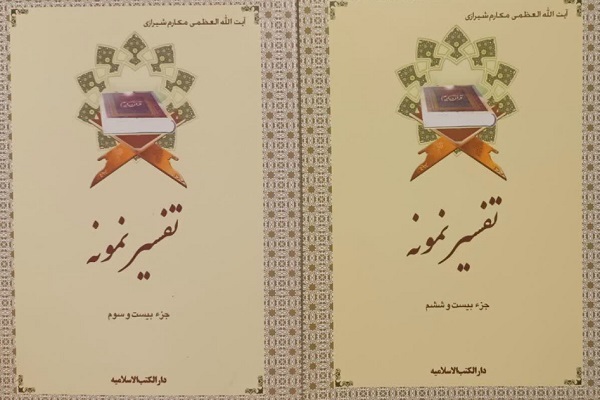 آیت الله العظمی مکارم شیرازی
تفسیر نمونه
جزء بیست و سوم
دارالکتب الاسلامیه
آیت الله العظمی مکارم شیرازی
تفسیر نمونه
جزء بیست و ششم
دارالکتب الاسلامیه